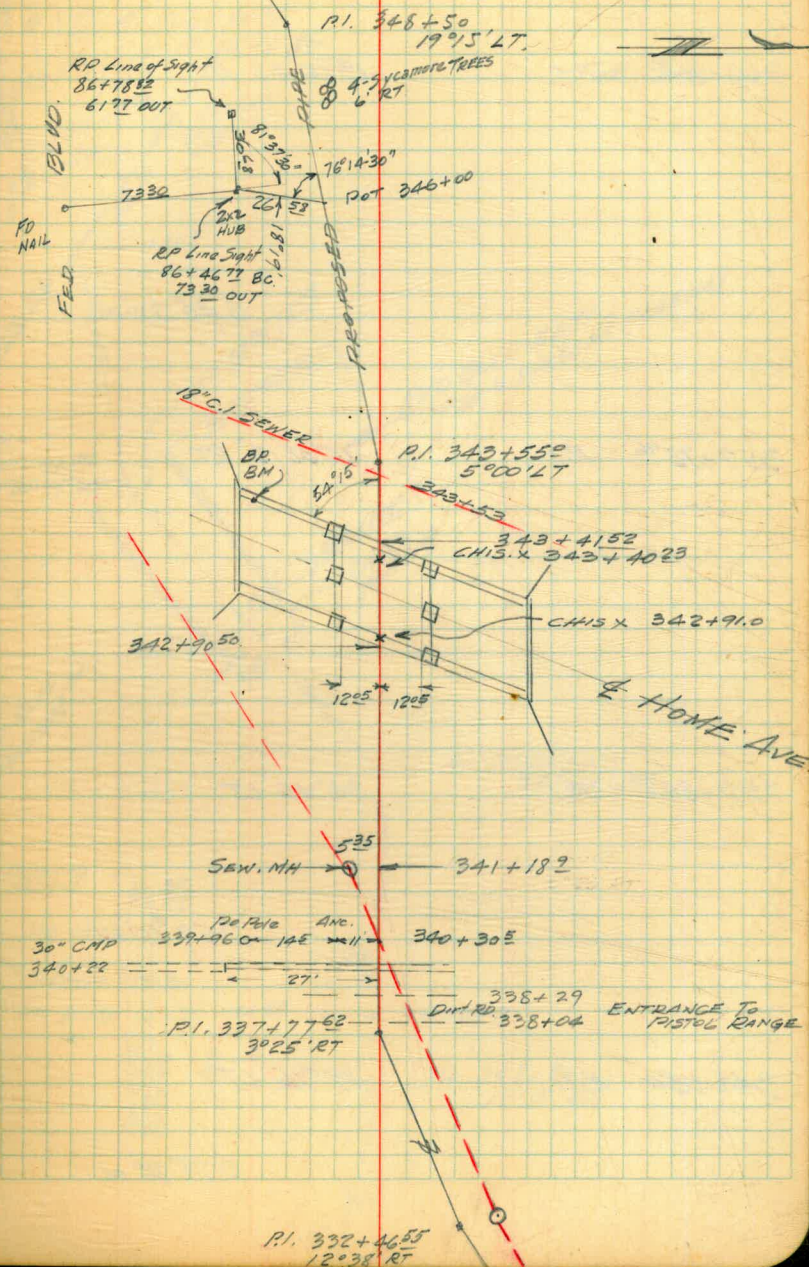 P.I. 348+50
19°15' LT.
RP Line of Sight
86+78 82
61 77 OUT
4-Sycamore TREES
6' RT
PIPE
BLVD.
30.68
81°37'30"
76°14'30"
POT 346+00
73 30
26 58
FD
NAIL
2x2
HUB
18.19'
RP Line Sight
86+46 77 BC.
73 30 OUT
FED.
PROPOSED
18" C.I. SEWER
BP.
BM
54°15'
P.I. 343+55 0
5°00' LT
343+53
343+41 52
CHIS. X 343+40 23
CHIS X 342+91.0
342+90 50
12 05 12 05
℄ HOME AVE
5 35
SEW. MH
341+18 9
Po Pole Anc.
339+96 14 5 11' 340+30 5
30" CMP
340+22
27'
338+29
Dirt RD.
338+04
ENTRANCE TO
PISTOL RANGE
P.I. 337+77 62
3°25' RT
P.I. 332+46 55
12°38' RT